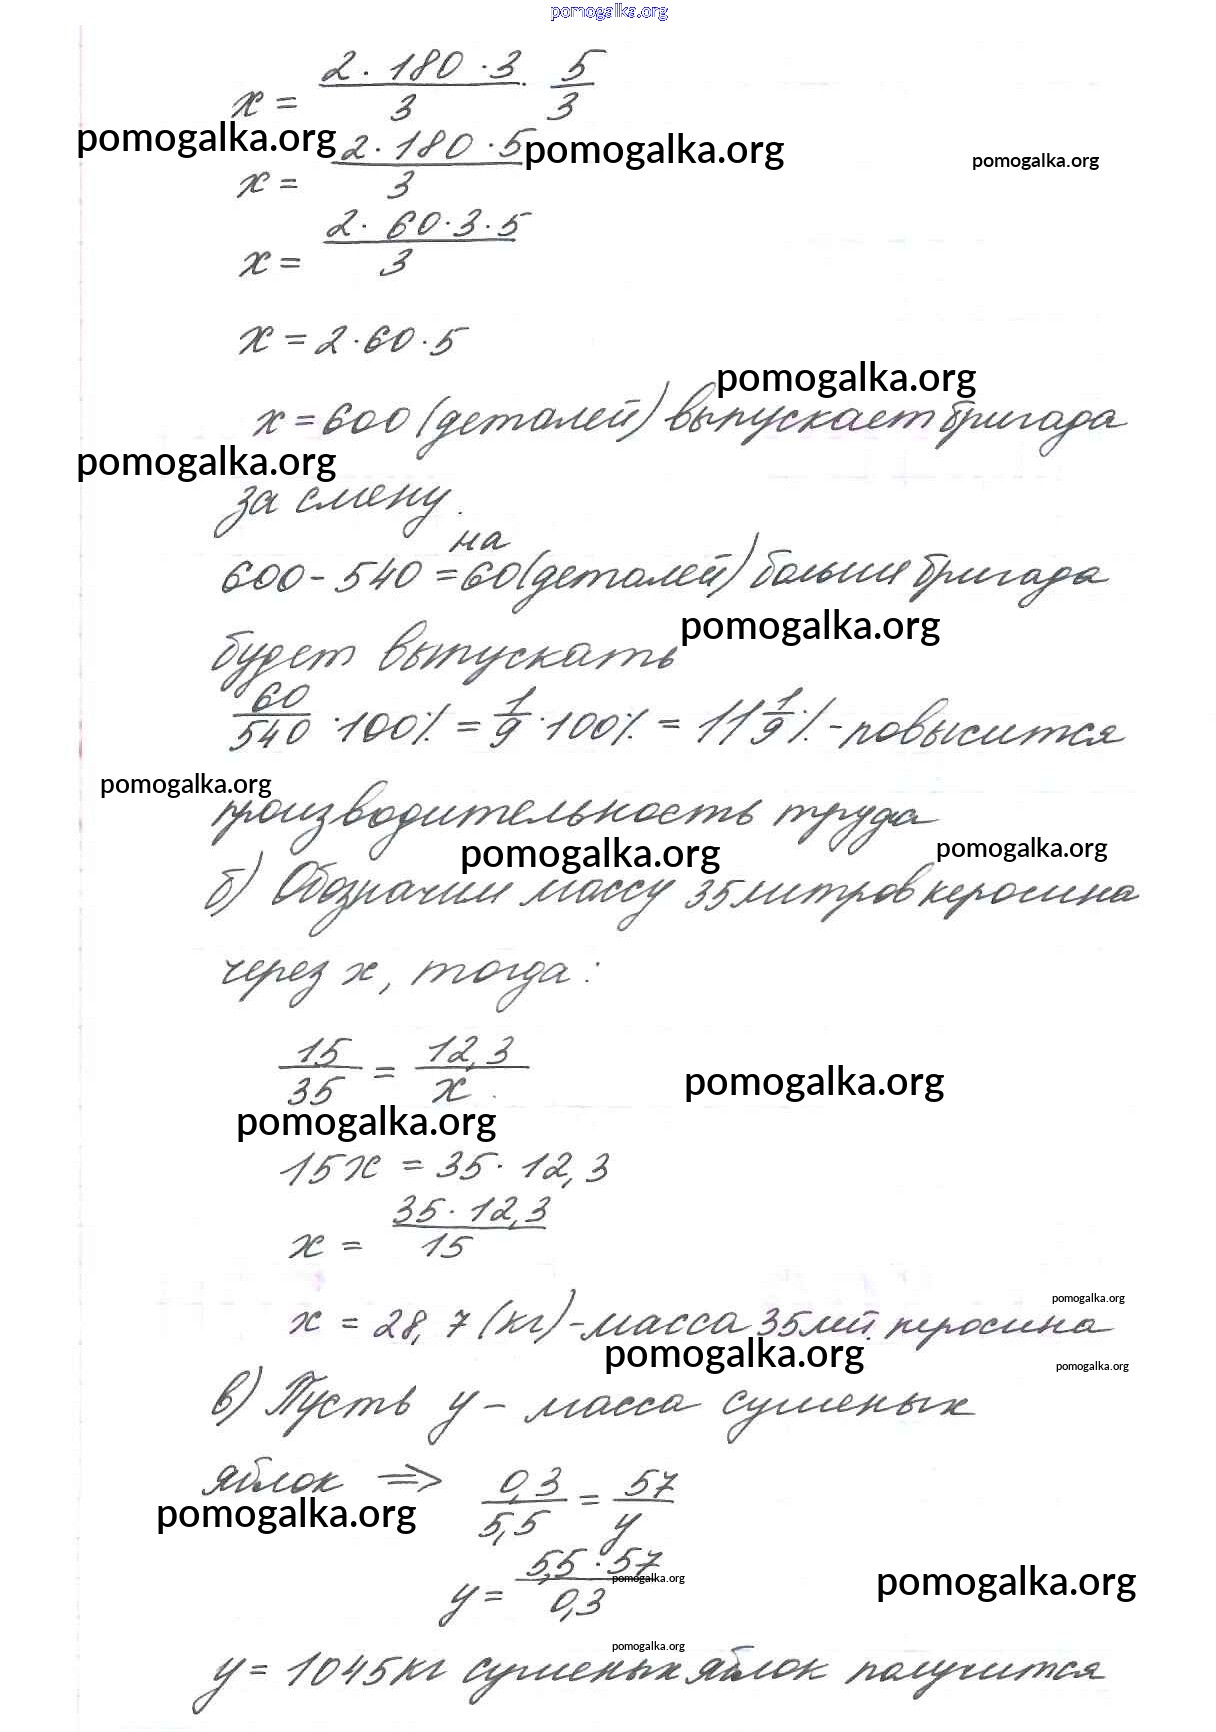 pomogalka.org
x = 2 · 180 · 3 / 3 · 5/3
pomogalka.org
pomogalka.org
pomogalka.org
x = 2 · 180 · 5 / 3
x = 2 · 60 · 3 · 5 / 3
x = 2 · 60 · 5
pomogalka.org
x = 600 (деталей) выпускает бригада
pomogalka.org
за смену.
на
600 - 540 = 60 (деталей) больше бригада
pomogalka.org
будет выпускать
60/540 · 100% = 1/9 · 100% = 11 1/9 % - повысится
pomogalka.org
производительность труда
pomogalka.org
pomogalka.org
б) Обозначим массу 35 литров керосина
через x, тогда:
15/35 = 12,3/x
pomogalka.org
pomogalka.org
15x = 35 · 12,3
x = 35 · 12,3 / 15
pomogalka.org
x = 28,7 (кг) - масса 35 керосина
pomogalka.org
pomogalka.org
в) Пусть y - масса сушеных
яблок ⇒ 0,3/5,5 = 57/y
pomogalka.org
y = 5,5 · 57 / 0,3
pomogalka.org
pomogalka.org
pomogalka.org
y = 1045 кг сушеных яблок получится